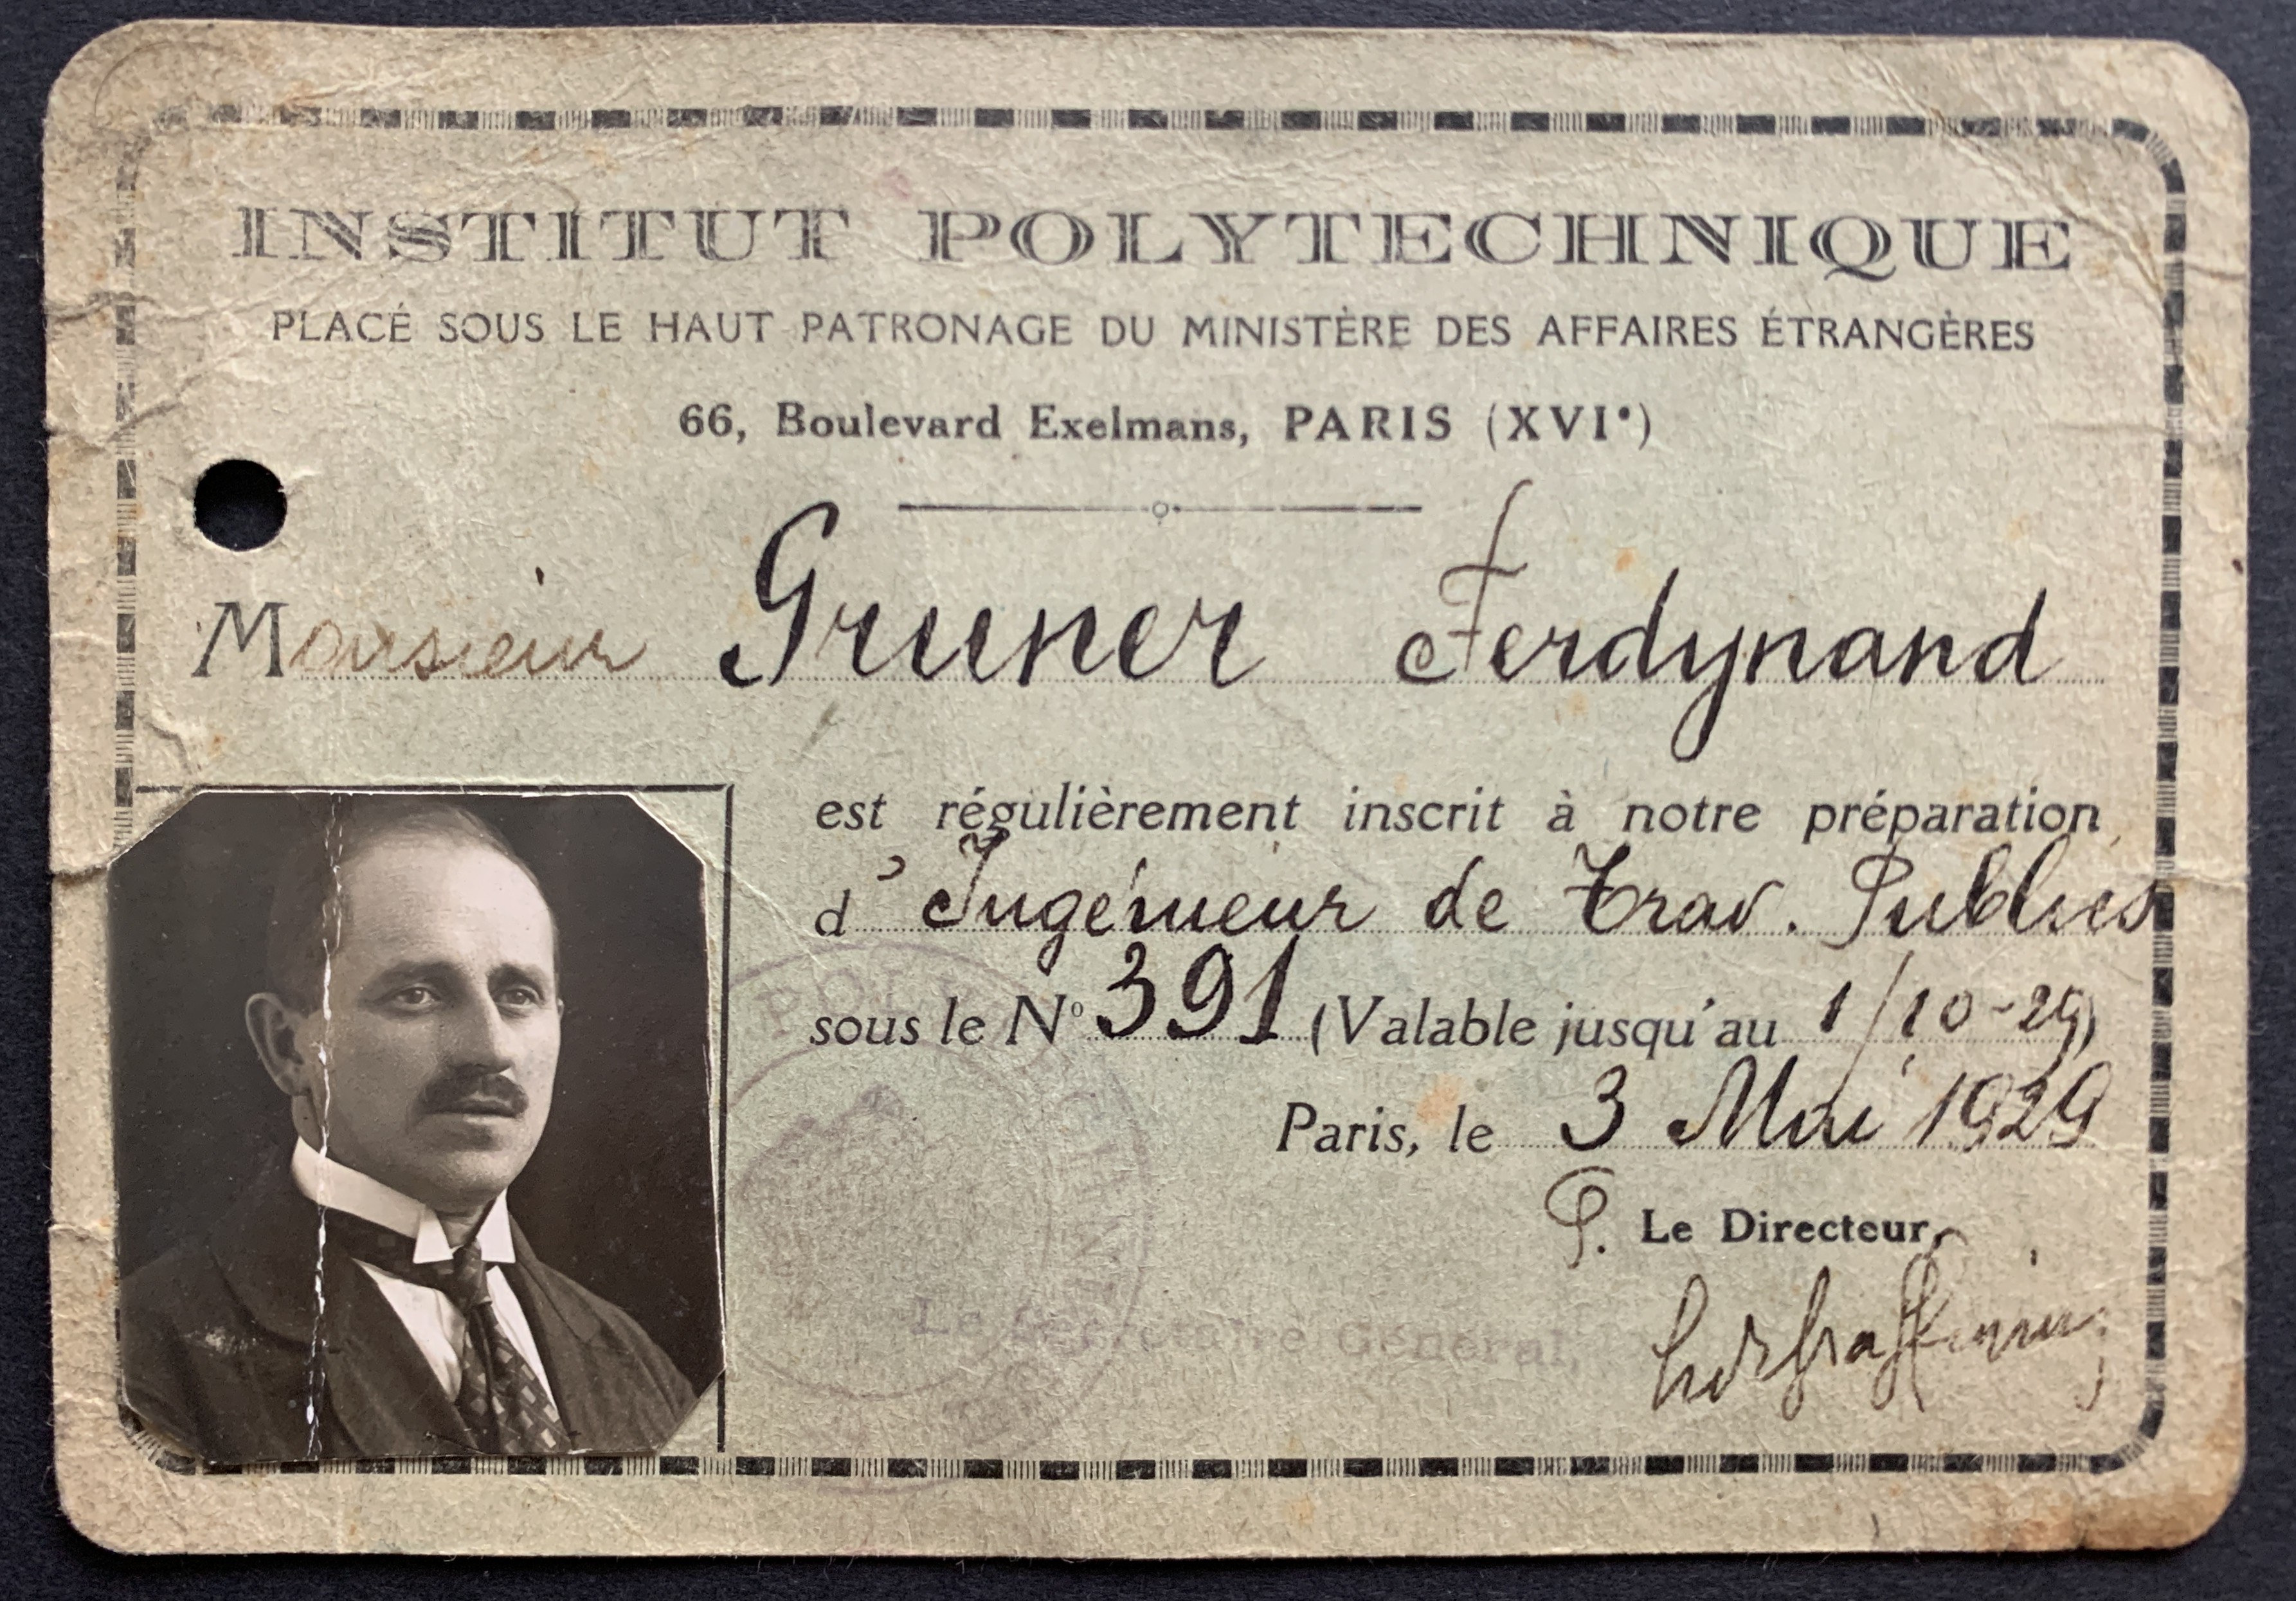 INSTITUT POLYTECHNIQUE
PLACÉ SOUS LE HAUT PATRONAGE DU MINISTÈRE DES AFFAIRES ÉTRANGÈRES
66, Boulevard Exelmans, PARIS (XVIe)
Monsieur Gruner Ferdynand
est régulièrement inscrit à notre préparation
d'Ingénieur de Trav. Publics
sous le No 391 (Valable jusqu'au 1/10-29)
Paris, le 3 Mai 1929
P. Le Directeur,
Le Secrétaire Général,